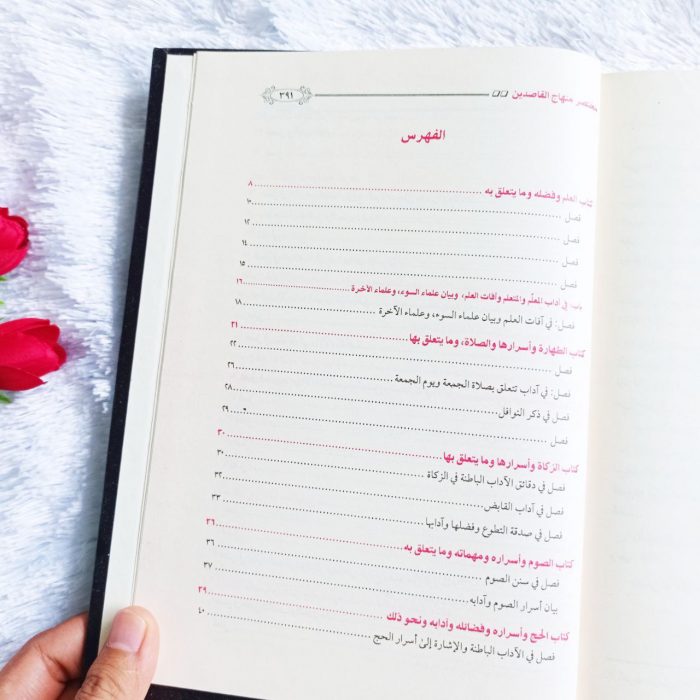 مختصر منهاج القاصدين ٣٩١
الفهرس
كتاب العلم وفضله وما يتعلق به ٨
فصل ١٠
فصل ١٢
فصل ١٤
فصل ١٥
باب: في آداب المعلّم والمتعلم وآفات العلم، وبيان علماء السوء، وعلماء الآخرة ١٦
فصل: في آفات العلم وبيان علماء السوء، وعلماء الآخرة ١٨
كتاب الطهارة وأسرارها والصلاة، وما يتعلق بها ٢١
فصل ٢٢
فصل: في آداب تتعلق بصلاة الجمعة ويوم الجمعة ٢٦
فصل في ذكر النوافل ٢٨
فصل ٢٩
كتاب الزكاة وأسرارها وما يتعلق بها ٣٠
فصل في دقائق الآداب الباطنة في الزكاة ٣٠
فصل في آداب القابض ٣٢
فصل في صدقة التطوع وفضلها وآدابها ٣٣
كتاب الصوم وأسراره ومهماته وما يتعلق به ٣٦
فصل في سنن الصوم ٣٦
بيان أسرار الصوم وآدابه ٣٧
كتاب الحج وأسراره وفضائله وآدابه ونحو ذلك ٣٩
فصل في الآداب الباطنة والإشارة إلى أسرار الحج ٤٠